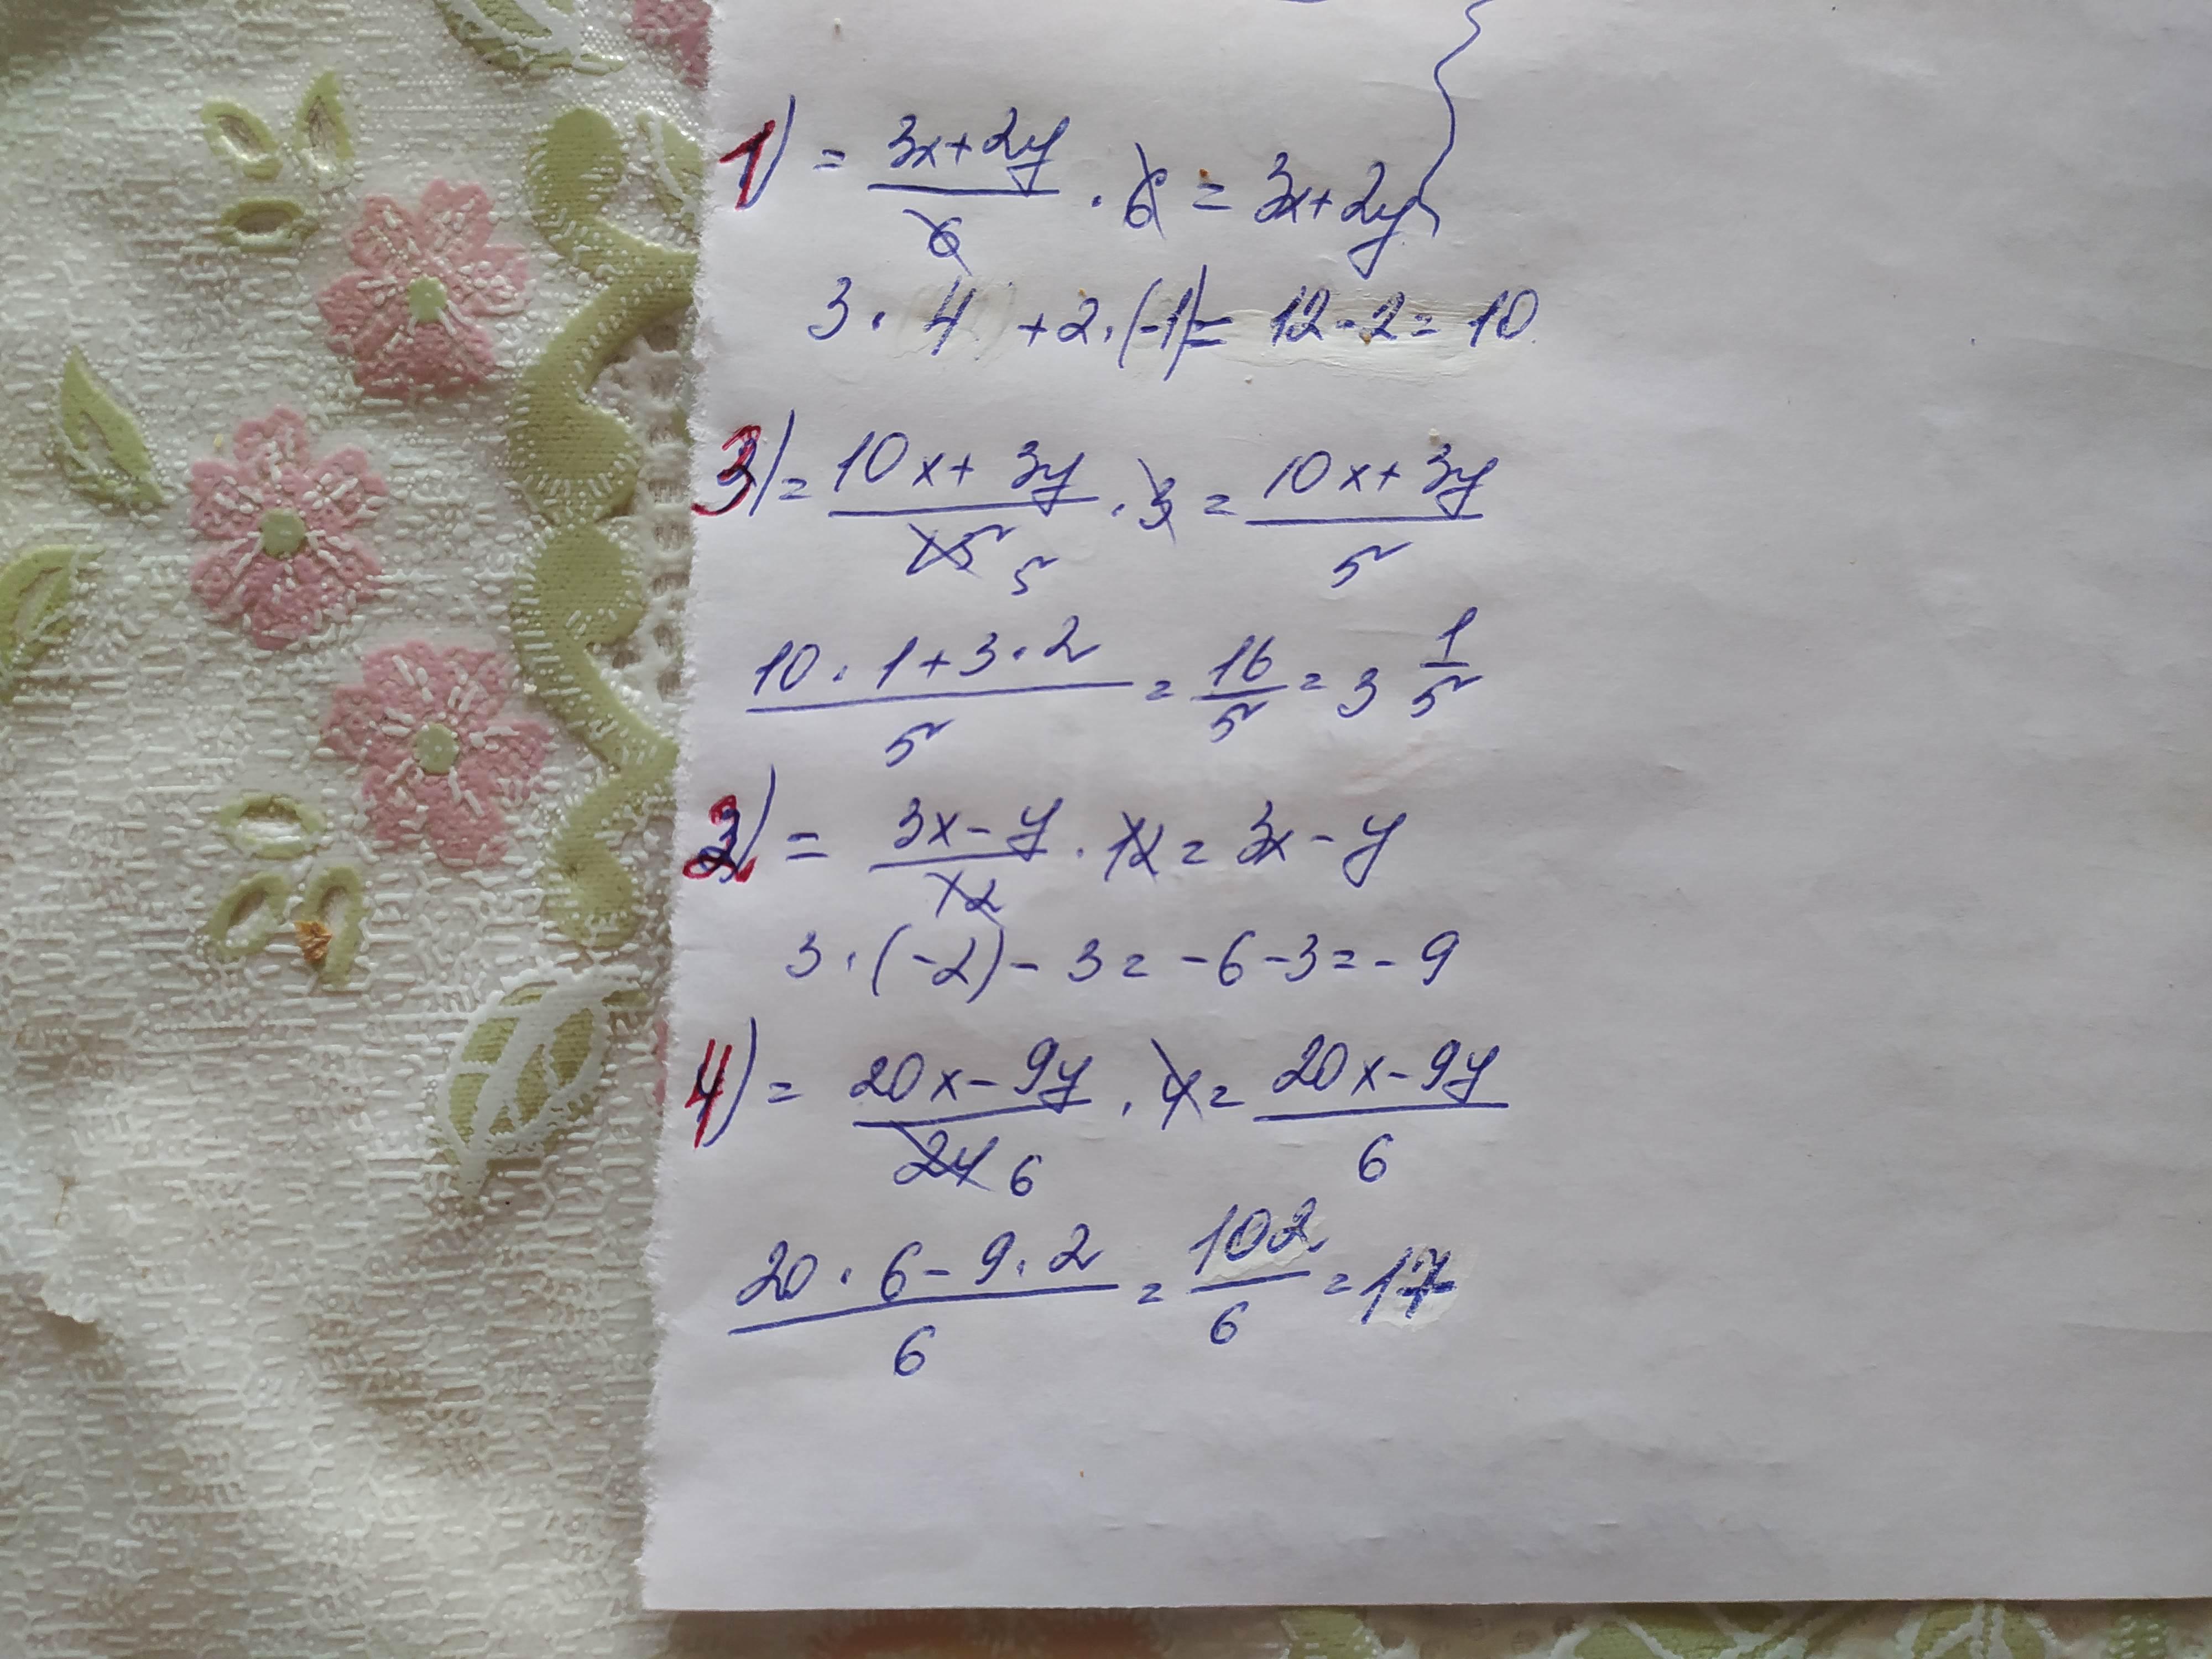 1) = 3x+2y/6 · 6 = 3x+2y
3 · 4 +2·(-1)= 12-2= 10
3) = 10x+3y/15 5 · 3 = 10x+3y/5
10·1+3·2/5 = 16/5 = 3 1/5
2) = 3x-y/12 · 12 = 3x-y
3·(-2)-3= -6-3= -9
4) = 20x-9y/24 6 · 4 = 20x-9y/6
20·6-9·2/6 = 102/6 = 17